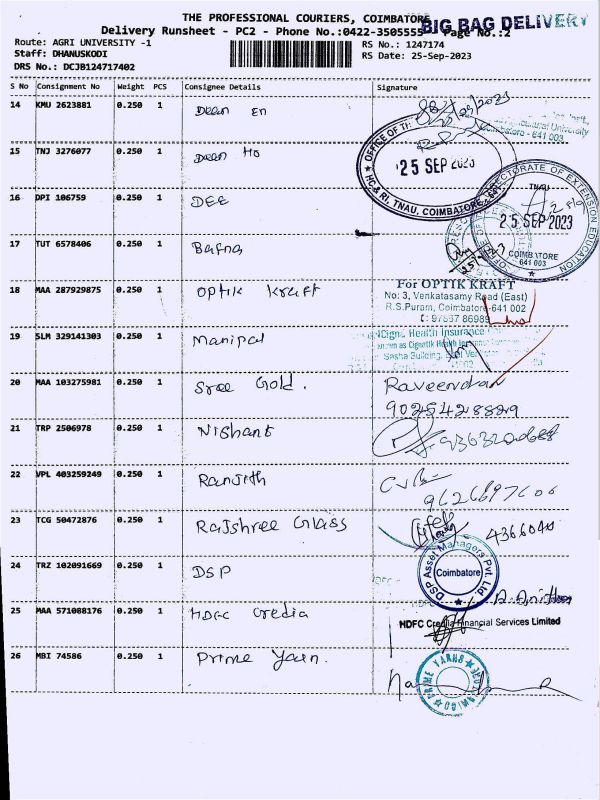 THE PROFESSIONAL COURIERS, COIMBATORE
BIG BAG DELIVERY
Delivery Runsheet - PC2 - Phone No.:0422-3505555 Page No.:2
Route: AGRI UNIVERSITY -1
RS No.: 1247174
Staff: DHANUSKODI
RS Date: 25-Sep-2023
DRS No.: DCJB124717402
S No Consignment No Weight PCS Consignee Details Signature
14 KMU 2623881 0.250 1 Dean En
Agricultural University
Coimbatore - 641 003
15 TNJ 3276077 0.250 1 Dean Ho
OFFICE OF
25 SEP 2023
HC & RI, TNAU, COIMBATORE
16 DPI 106759 0.250 1 DEE
DIRECTORATE OF EXTENSION EDUCATION
TNAU
25 SEP 2023
COIMBATORE
641 003
17 TUT 6578406 0.250 1 Bafna
18 MAA 287929875 0.250 1 Optik Kraft
For OPTIK KRAFT
No: 3, Venkatasamy Road (East)
R.S.Puram, Coimbatore-641 002
19 SLM 329141303 0.250 1 Manipal
Health Insurance
20 MAA 103275981 0.250 1 Sree Gold.
Raveendran
9025428829
21 TRP 2506978 0.250 1 Nishant
22 VPL 403259249 0.250 1 Ranjith
9626697606
23 TCG 50472876 0.250 1 Rajshree Glass
24 TRZ 102091669 0.250 1 DSP
DSP Asset Managers Pvt. Ltd.
Coimbatore
25 MAA 571088176 0.250 1 HDFC Credia
HDFC Credila Financial Services Limited
26 MBI 74586 0.250 1 Prime Yarn.
PRIME YARNS